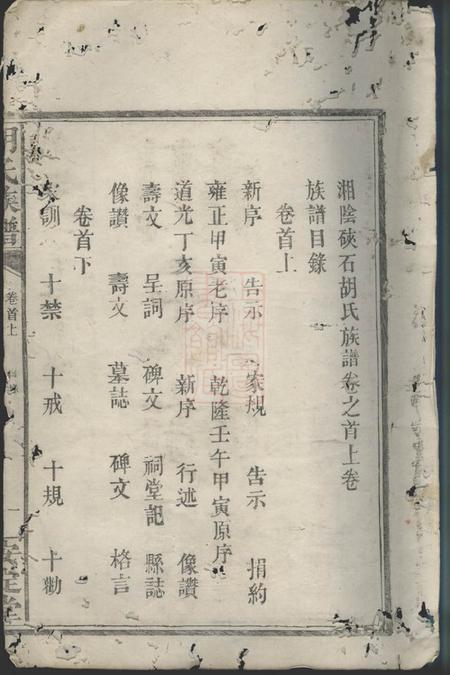 湘陰硤石胡氏族譜卷之首上卷
族譜目錄
卷首上
新序 告示 家規 告示 捐約
雍正甲寅老序 乾隆壬午甲寅原序
道光丁亥原序 新序 行述 像讚
壽文 呈詞 碑文 祠堂記 縣誌
像讚 壽文 墓誌 碑文 格言
卷首下
家訓 十禁 十戒 十規 十勸
胡氏族譜 卷首上 一